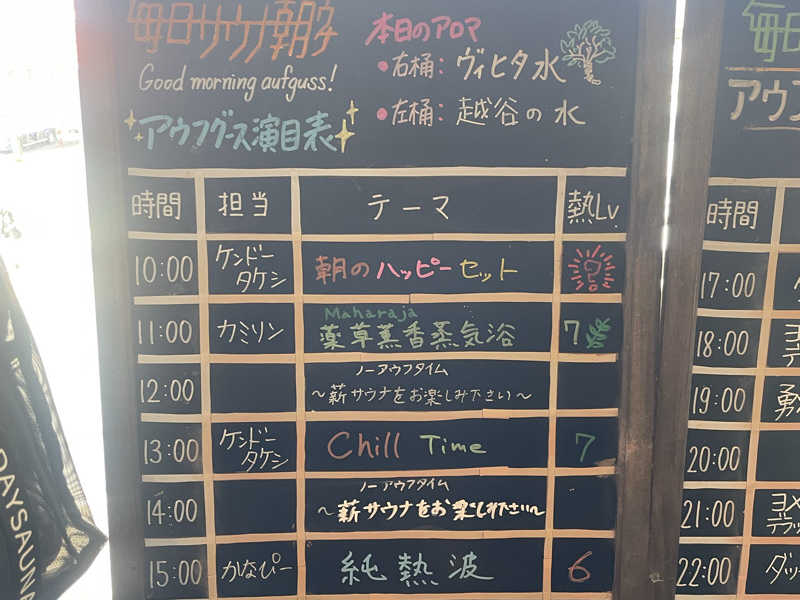 毎日サウナ朝子
Good morning aufguss!
アウフグース演目表
本日のアロマ
•右桶: ヴィヒタ水
•左桶: 越谷の水
時間 担当 テーマ 熱Lv.
10:00 ケンドータケシ 朝のハッピーセット
11:00 カミリン Maharaja 薬草薫香蒸気浴 7
12:00 ノーアウフタイム
〜薪サウナをお楽しみ下さい〜
13:00 ケンドータケシ Chill Time 7
14:00 ノーアウフタイム
〜薪サウナをお楽しみ下さい〜
15:00 かなぴー 純熱波 6
毎日
アウフ
時間
17:00
18:00
19:00
20:00
21:00
22:00
DAYSAUNA